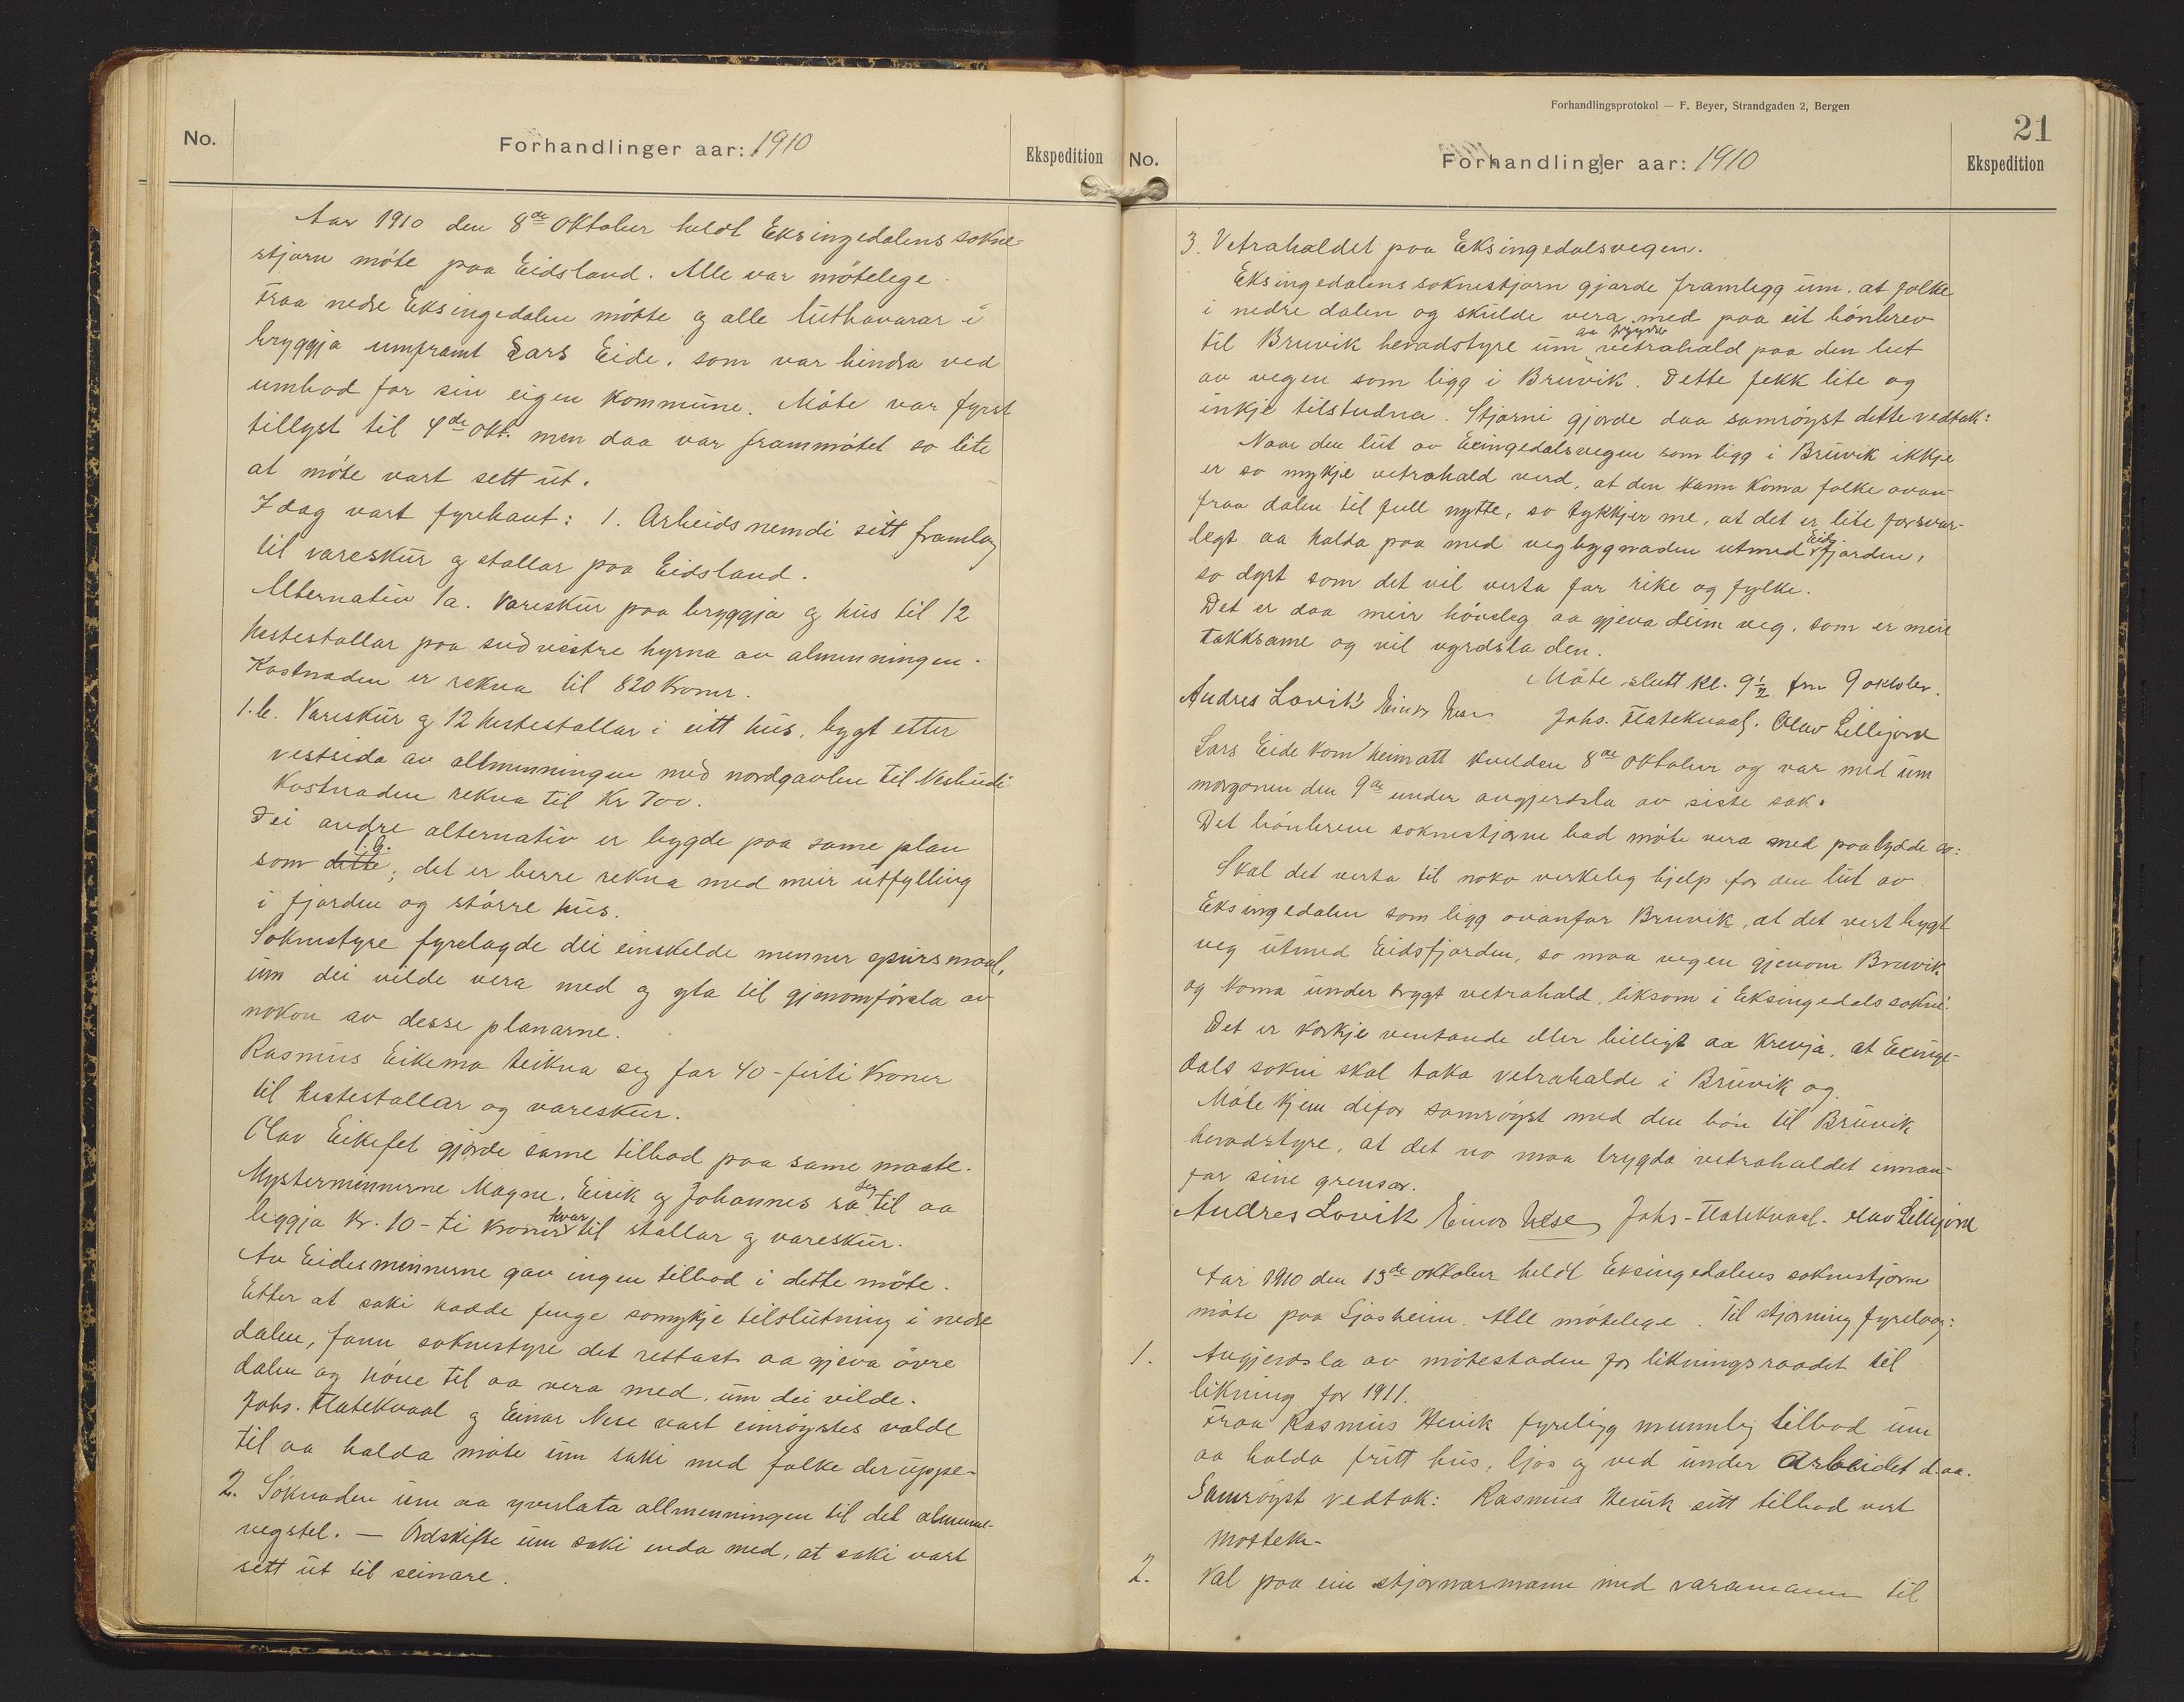 No.
Forhandlinger aar: 1910
Ekspedition
Aar 1910 den 8de oktober heldt Eksingedalens sokne-
stjorn möte paa Eidsland. Alle var mötelege.
Fraa nedre Eksingedalen mötte og alle luthavarar i
bryggja umframt Lars Eide, som var hindra ved
umbod for sin eigen kommune. Möte var fyrst
tillyst til 4de okt. men daa var frammötet so lite
at möte vart sett ut.
I dag vart fyrehavt: 1. Arbeidsnemdi sitt framlag
til vareskur og stallar paa Eidsland.
Alternativ 1a. Vareskur paa bryggja og hus til 12
hestestallar paa sudvestre hyrna av almenningen.
Kostnaden er rekna til 820 kroner.
1.b. Vareskur og 12 hestestallar i eitt hus, bygt etter
vestsida av allmenningen med nordgavlen til Nesbudi
Kostnaden rekna til Kr 700.
Dei andre alternativ er bygde paa same plan
som dette 1.b.; det er berre rekna med meir utfylling
i fjorden og större hus.
Soknestyre fyrelagde dei einskelde menner spursmaal,
um dei vilde vera med og yta til gjenomförsla av
nokon av desse planarne.
Rasmus Eikemo teikna seg for 40 - firti kroner
til hestestallar og vareskur.
Olav Eikefet gjorde same tilbod paa same maate.
Mysterminnerne Magne, Eirik og Johannes sa seg til aa
leggja kr. 10 - ti kroner kvar til stallar og vareskur.
Av Eidesminnerne gav ingen tilbod i dette möte.
Etter at saki hadde fenge somykje tilslutning i nedre
dalen, fann soknestyre det rettast aa gjeva övre
dalen og höve til aa vera med, um dei vilde.
Johs. Flatekvaal og Einar Nese vart einröystes valde
til aa halda möte um saki med folke der uppe.
2. Söknaden um aa yverlata allmenningen til det almenne-
vegstel. — Ordskifte um saki enda med, at saki vart
sett ut til seinare.
Forhandlingsprotokol — F. Beyer, Strandgaden 2, Bergen
21
No.
Forhandlinger aar: 1910
Ekspedition
3. Vetrahaldet paa Eksingedalsvegen.
Eksingedalens soknestjorn gjorde framlegg um, at folke
i nedre dalen og skulde vera med paa eit bönbrev
til Bruvik heradstyre um av trygda vetrahald paa den lut
av vegen som ligg i Bruvik. Dette fekk lite og
inkje tilstudna. Stjorni gjorde daa samröyst dette vedtak:
Naar den lut av Exingedalsvegen som ligg i Bruvik ikkje
er so mykje vetrahald verd, at den kann koma folke ovan-
fraa dalen til full nytte, so tykkjer me, at det er lite forsvar-
legt aa halda paa med vegbygnaden utmed Eidsfjorden,
so dyrt som det vil verta for rike og fylke.
Det er daa meir hövsleg aa gjeva deim veg, som er meir
takksame og vil vyrdsla den.
Möte slutt kl. 9½ fm 9 oktober.
Andres Lavik Einar Nese Johs. Flatekvaal. Olav Lillejord
Lars Eide kom heimatt kvelden 8de oktober og var med um
morgonen den 9de under avgjerdsla av siste sak.
Det bönbreve soknestjorne bad möte vera med paa lydde so:
Skal det verta til noko verkeleg hjelp for den lut av
Eksingedalen som ligg ovanfor Bruvik, at det vert bygt
veg utmed Eidsfjorden, so maa vegen gjenom Bruvik
og koma under trygt vetrahald, liksom i Eksingedals sokni.
Det er korkje ventande eller billigt aa krevja, at Exinge-
dals sokni skal taka vetrahalde i Bruvik og.
Möte kjem difor samröyst med den bön til Bruvik
heradstyre, at det no maa trygda vetrahaldet innan-
for sine grensor.
Andres Lavik Einar Nese Johs. Flatekvaal. Olav Lillejord
Aar 1910 den 13de oktober heldt Eksingedalens soknestjorn
möte paa Ljosheim. Alle mötelege. Til stjorning fyrelaag:
1. Avgjerdsla av mötestaden for likningsraadet til
likning for 1911.
Fraa Rasmus Hevik fyreligg munnleg tilbod um
aa halda fritt hus, ljos og ved under Arbeidet d. aa.
Samröyst vedtak: Rasmus Hevik sitt tilbod vert
motteke.
2. Val paa ein stjornarmann med varamann til